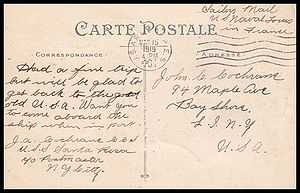 Sailors Mail
U.S. Naval Forces
in France
CARTE POSTALE
1919
CORRESPONDANCE
ADRESSE
Had a fine trip
but will be glad to
get back to the good
old U.S.A. Want you
to come aboard the
ship when in port.
J.A. Cochrane
U.S.S. Santa Rosa
c/o Postmaster
N.Y. City
John C. Cochrane
94 Maple Ave
Bay Shore
L.I. N.Y
U.S.A.